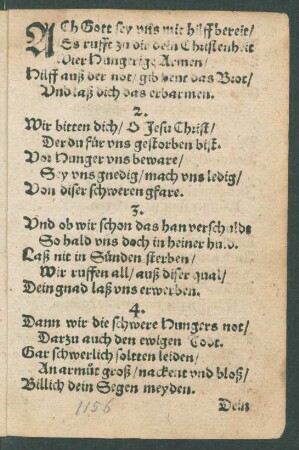 ACh Gott sey vns mit hilff bereit/
Es rufft zu dir dein Christenheit
Wier Hungerige Armen/
Hilff auß der not/ gib vns das Brot/
Vnd laß dich das erbarmen.
2.
Wir bitten dich/ O Jesu Christ/
Der du für vns gestorben bist.
Vor Hunger vns beware/
Sey vns gnedig/ mach vns ledig/
Von diser schweren gfare.
3.
Vnd ob wir schon das han verschuldt
So hald vns doch in heiner huld.
Laß nit in Sünden sterben/
Wir ruffen all/ auß diser qual/
Dein gnad laß vns erwerben.
4.
Dann wir die schwere Hungers not/
Darzu auch den ewigen Todt.
Gar schwerlich soltten leiden/
An armůt groß/ nackent vnd bloß/
Billich dein Segen meyden.
Dein
1156